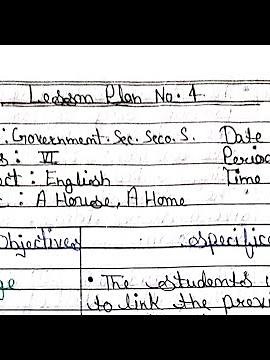 Lesson Plan No. 4
: Government. Sec. Seco. S. Date
s : VI Period
ct : English Time
c : A House, A Home
Objectives specific
ge • The students
to link the prev